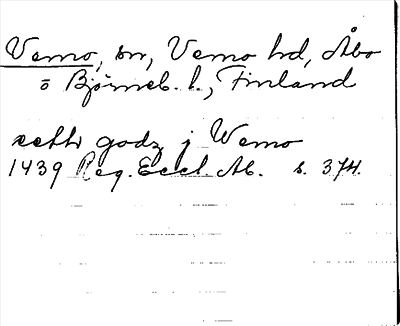 Vemo, sn, Vemo hd, Åbo
o Björneb. l., Finland
rettr godz j Wemo
1439 Reg. Eccl. Ab. s. 374.